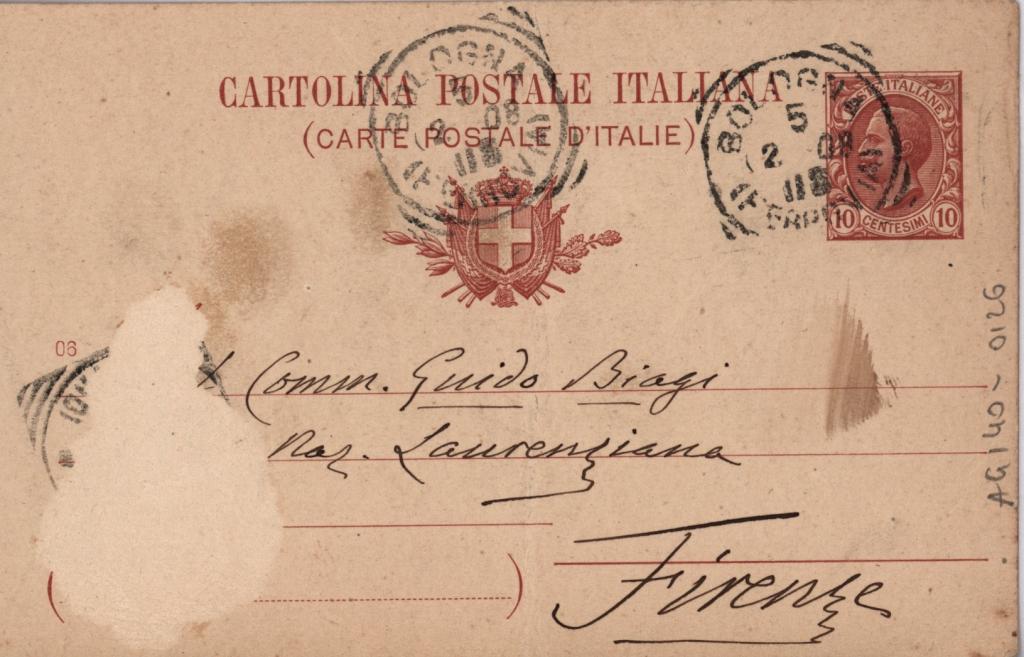 CARTOLINA POSTALE ITALIANA
(CARTE POSTALE D'ITALIE)
BOLOGNA
5
2 08
11S
BOLOGNA
5
2 08
11S
POSTE ITALIANE
10 CENTESIMI 10
06
Comm. Guido Biagi
Naz. Laurenziana
Firenze
AG140-0126